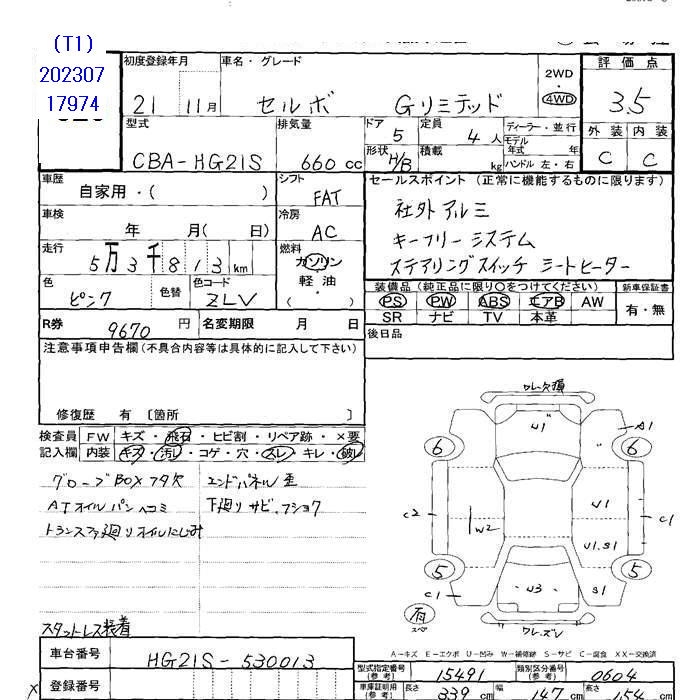 (T1)
202307
17974
初度登録年月
車名・グレード
2WD
・
4WD
評価点
21 11月
セルボ Gリミテッド
3.5
外装 内装
C C
型式
排気量
ドア
定員
ディーラー・並行
CBA-HG21S
660 cc
5
4 人
モデル年式 年
形状 H/B
積載 kg
ハンドル 左・右
車歴
自家用・( )
シフト
FAT
セールスポイント(正常に機能するものに限ります)
社外アルミ
キーフリーシステム
ステアリングスイッチ シートヒーター
車検
年 月( 日)
冷房
AC
走行
5万3千813km
燃料
ガソリン
軽油
・( )
色
ピンク
色替
色コード
ZLV
装備品(純正品に限り○をつけてください)
新車保証書
PS PW ABS エアB AW
有・無
SR ナビ TV 本革
R券 9670 円
名変期限 月 日
後日品
注意事項申告欄(不具合内容等は具体的に記入して下さい)
修復歴 有〔箇所 〕
検査員記入欄
FW キズ・飛石・ヒビ割・リペア跡・×要
内装 キズ・汚レ・コゲ・穴・スレ・キレ・破レ
グローブBOXフタ欠
エンドパネル歪
ATオイルパンヘコミ
下廻りサビ、フショク
トランスファ廻りオイルにじみ
スタットレス装着
ワレ.欠損
U1
A1
6
6
C2
W2
U1
C1
U1.S1
5
5
C1
U3
S1
有
スペ
ワレ.ズレ
A-キズ E-エクボ U-凹み W-補修跡 S-サビ C-腐食 XX-交換済
車台番号
HG21S-530013
登録番号
X
型式指定番号(参考)
15491
類別区分番号(参考)
0604
車庫証明用(参考)
長さ 339 cm
幅 147 cm
高さ 154 cm